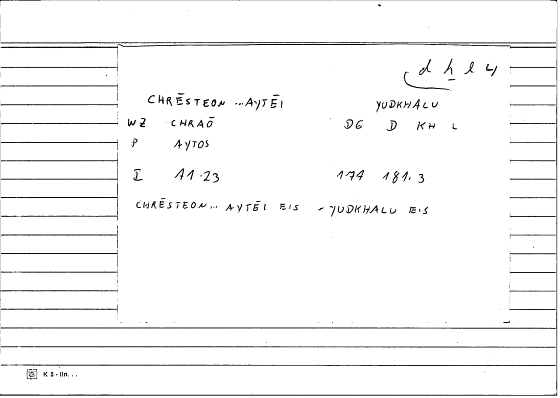 d h l 4
CHRĒSTEON ... AYTĒI YUDKHALU
WZ CHRAŌ DG D KH L
P AYTOS
I A1.23 174 181.3
CHRĒSTEON... AYTĒI EIS - YUDKHALU EIS
K 5 - lin...